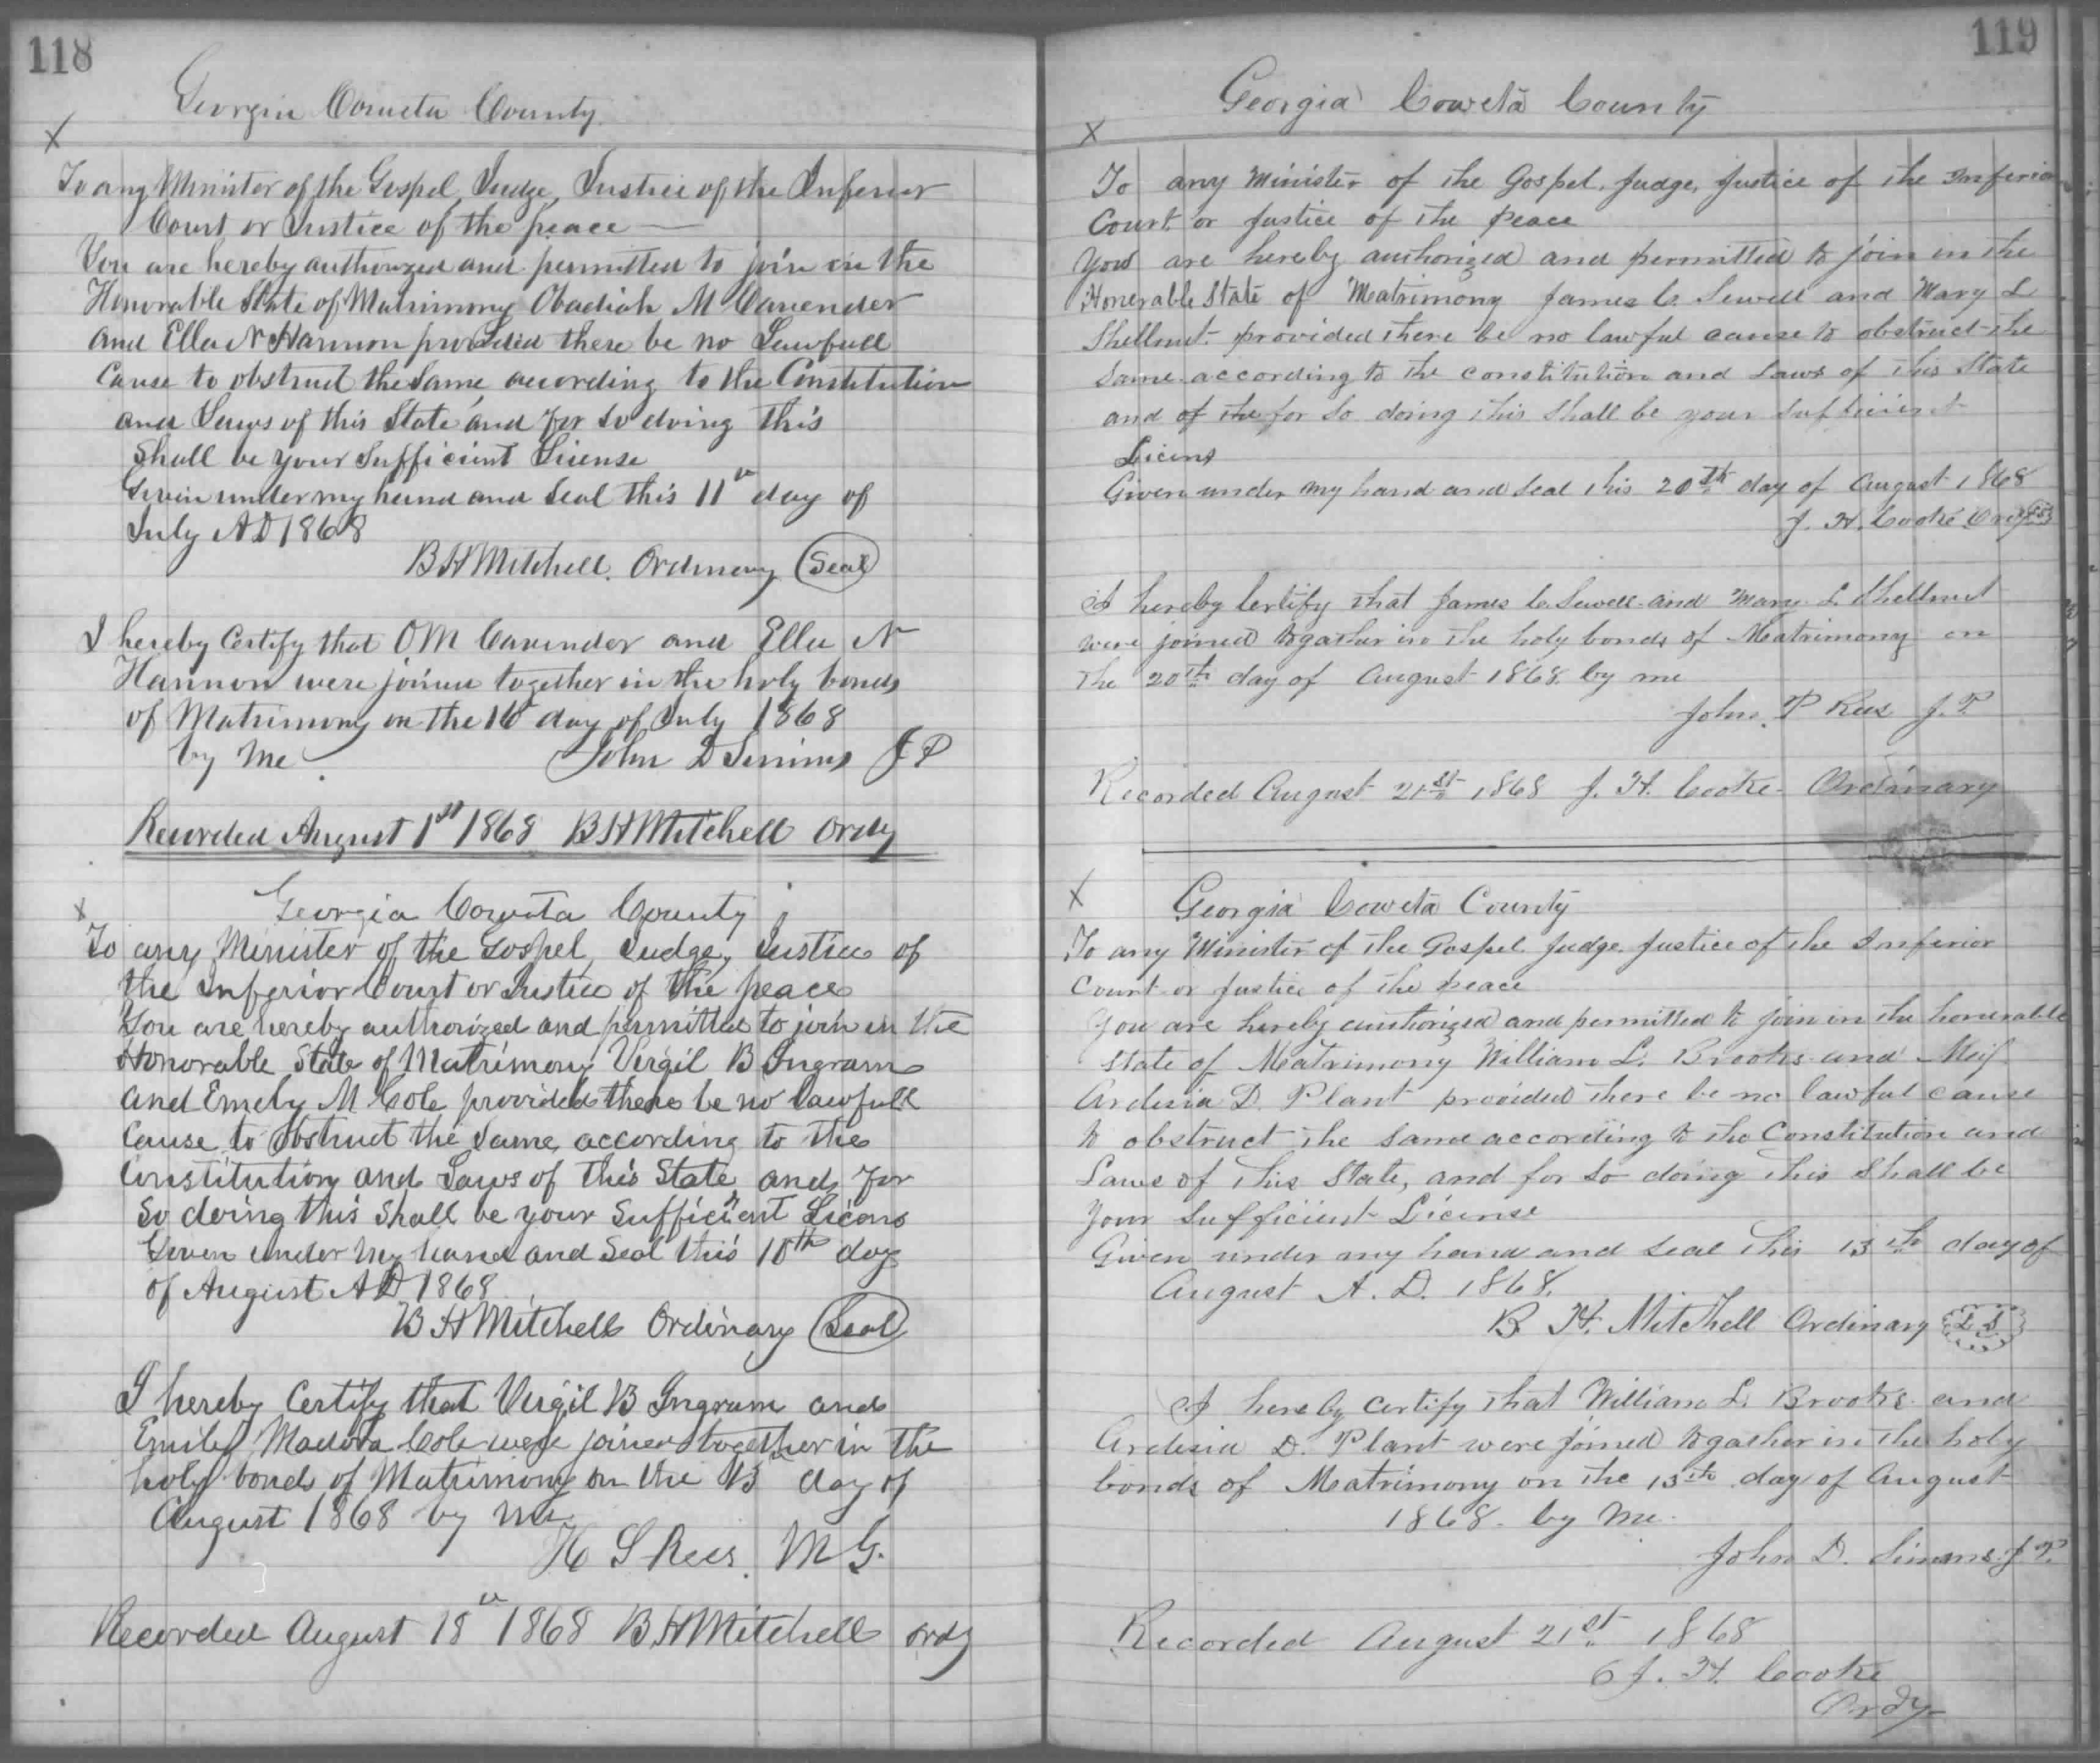 118
Georgia Coweta County
X
To any Minister of the Gospel, Judge, Justice of the Inferior
Court or Justice of the peace —
You are hereby authorized and permitted to join in the
Honorable State of Matrimony Obadiah M Cavender
and Ella N Hannon provided there be no Lawfull
Cause to obstruct the Same, according to the Constitution
and Laws of this State and for so doing this
Shall be your Sufficient License
Given under my hand and Seal this 11th day of
July AD 1868
B H Mitchell. Ordinary Seal
I hereby Certify that O M Cavender and Ella N
Hannon were joined together in the holy bonds
of Matrimony on the 16 day of July 1868
by Me John D Simms J P
Recorded August 1st 1868 B H Mitchell Ordy
X Georgia Coweta County
To any Minister of the Gospel, Judge, Justice of
the Inferior Court or Justice of the peace
You are hereby authorized and permitted to join in the
Honorable State of Matrimony Virgil B Ingram
and Emely M Cole, provided there be no lawfull
Cause to obstruct the Same, according to the
Constitution and Laws of this State and for
So doing this Shall be your Sufficient Licens
Given under my hand and Seal this 10th day
of August AD 1868
B H Mitchell Ordinary Seal
I hereby Certify that Virgil B Ingram and
Emily Madora Cole were joined together in the
holy bonds of Matrimony on the 13th day of
August 1868 by me
H S Rees. M G.
Recorded August 18th 1868 B H Mitchell ordy
119
Georgia Coweta County
X
To any Minister of the Gospel, Judge, Justice of the Inferior
Court or Justice of the peace
You are hereby authorized and permitted to join in the
Honerable State of Matrimony James C. Sewell and Mary L
Shellnut provided there be no lawful cause to obstruct the
Same according to the constitution and Laws of this State
and of the for So doing this Shall be your Sufficient
Licens
Given under my hand and Seal this 20th day of August 1868
J. H. Cooke Ordy LS
I hereby Certify that James C. Sewell and Mary L. Shellnut
were joined togather in the holy bonds of Matrimony on
the 20th day of August 1868 by me
John. P Rees J. P.
Recorded August 21st 1868 J. H. Cooke Ordinary
X Georgia Coweta County
To any Minister of the Gospel Judge Justice of the Inferior
Court or Justice of the peace
You are hereby authorized and permitted to join in the honerable
State of Matrimony William L. Brooks and Miss
Ardisia D. Plant provided there be no lawful cause
to obstruct the Same according to the Constitution and
Laws of this State, and for So doing this Shall be
Your Sufficient License
Given under my hand and Seal this 13th day of
August A. D. 1868.
B. H. Mitchell Ordinary L S
I hereby certify that William L. Brooks and
Ardisia D. Plant were joined togather in the holy
bonds of Matrimony on the 13th day of August
1868. by Me.
John D. Simms J P.
Recorded August 21st 1868
J. H. Cooke
Ordy